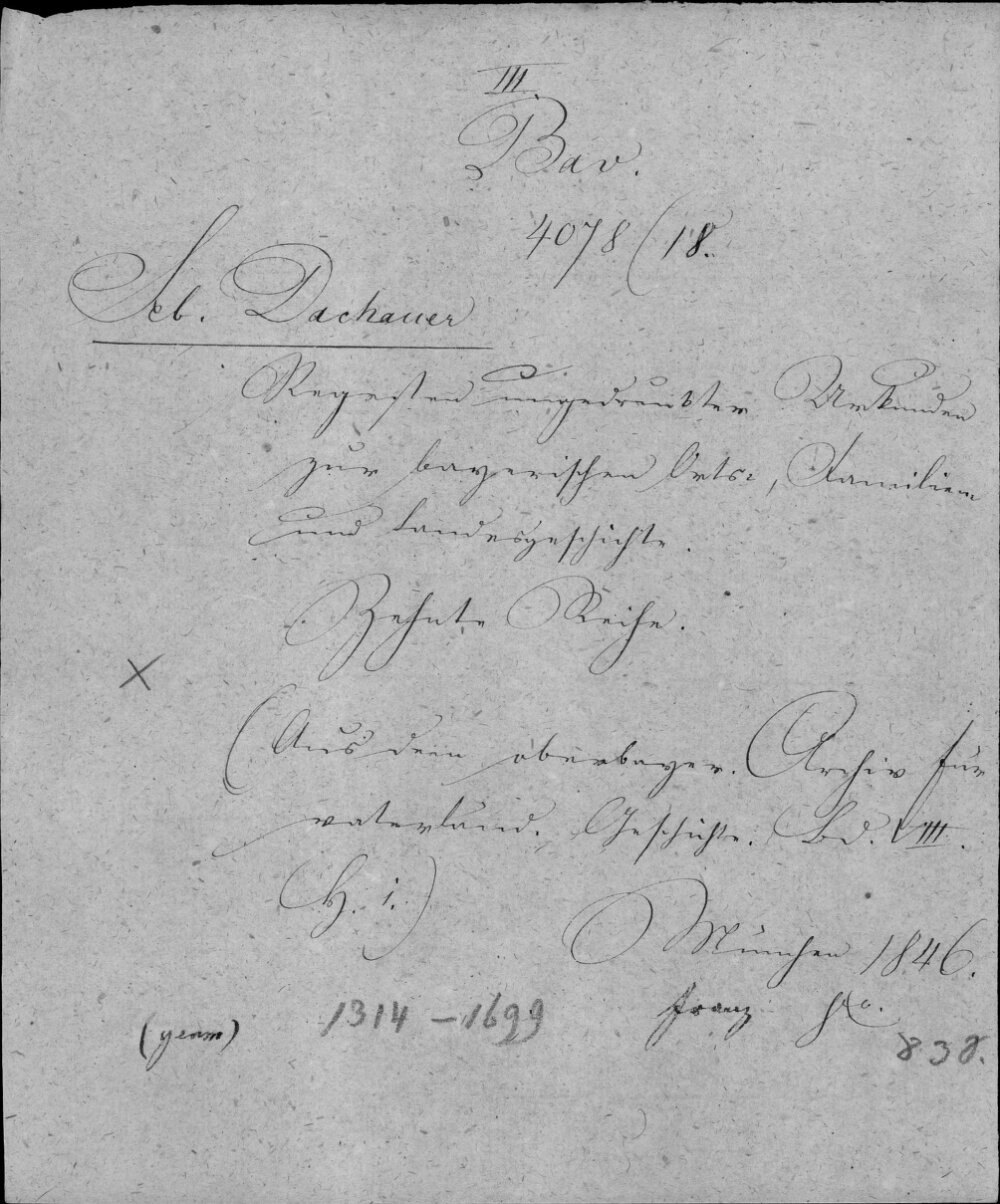 III.
Bav.
4078 (18.
Seb. Dachauer
Regesten ungedruckter Urkunden
zur bayerischen Orts-, Familien
und Landesgeschichte.
Zehnte Reihe.
(Aus dem oberbayer. Archiv für
vaterländ. Geschichte. Bd. VIII.
H. 1.)
München 1846.
Franz 8vo.
(germ) 1314 - 1699
838.